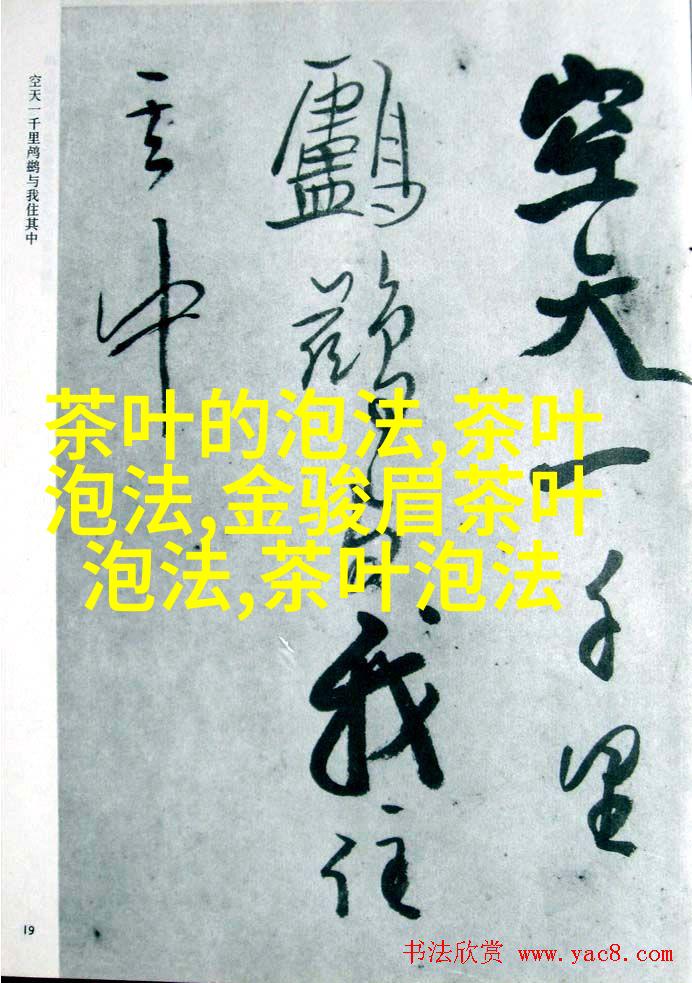 空天一千里
鸕鶿与我住
其中
空天一千里鸬鹚与我住其中
茶叶的泡法,茶叶
泡法,金骏眉茶叶
泡法,茶叶泡法
19
书法欣赏 www.yac8.com